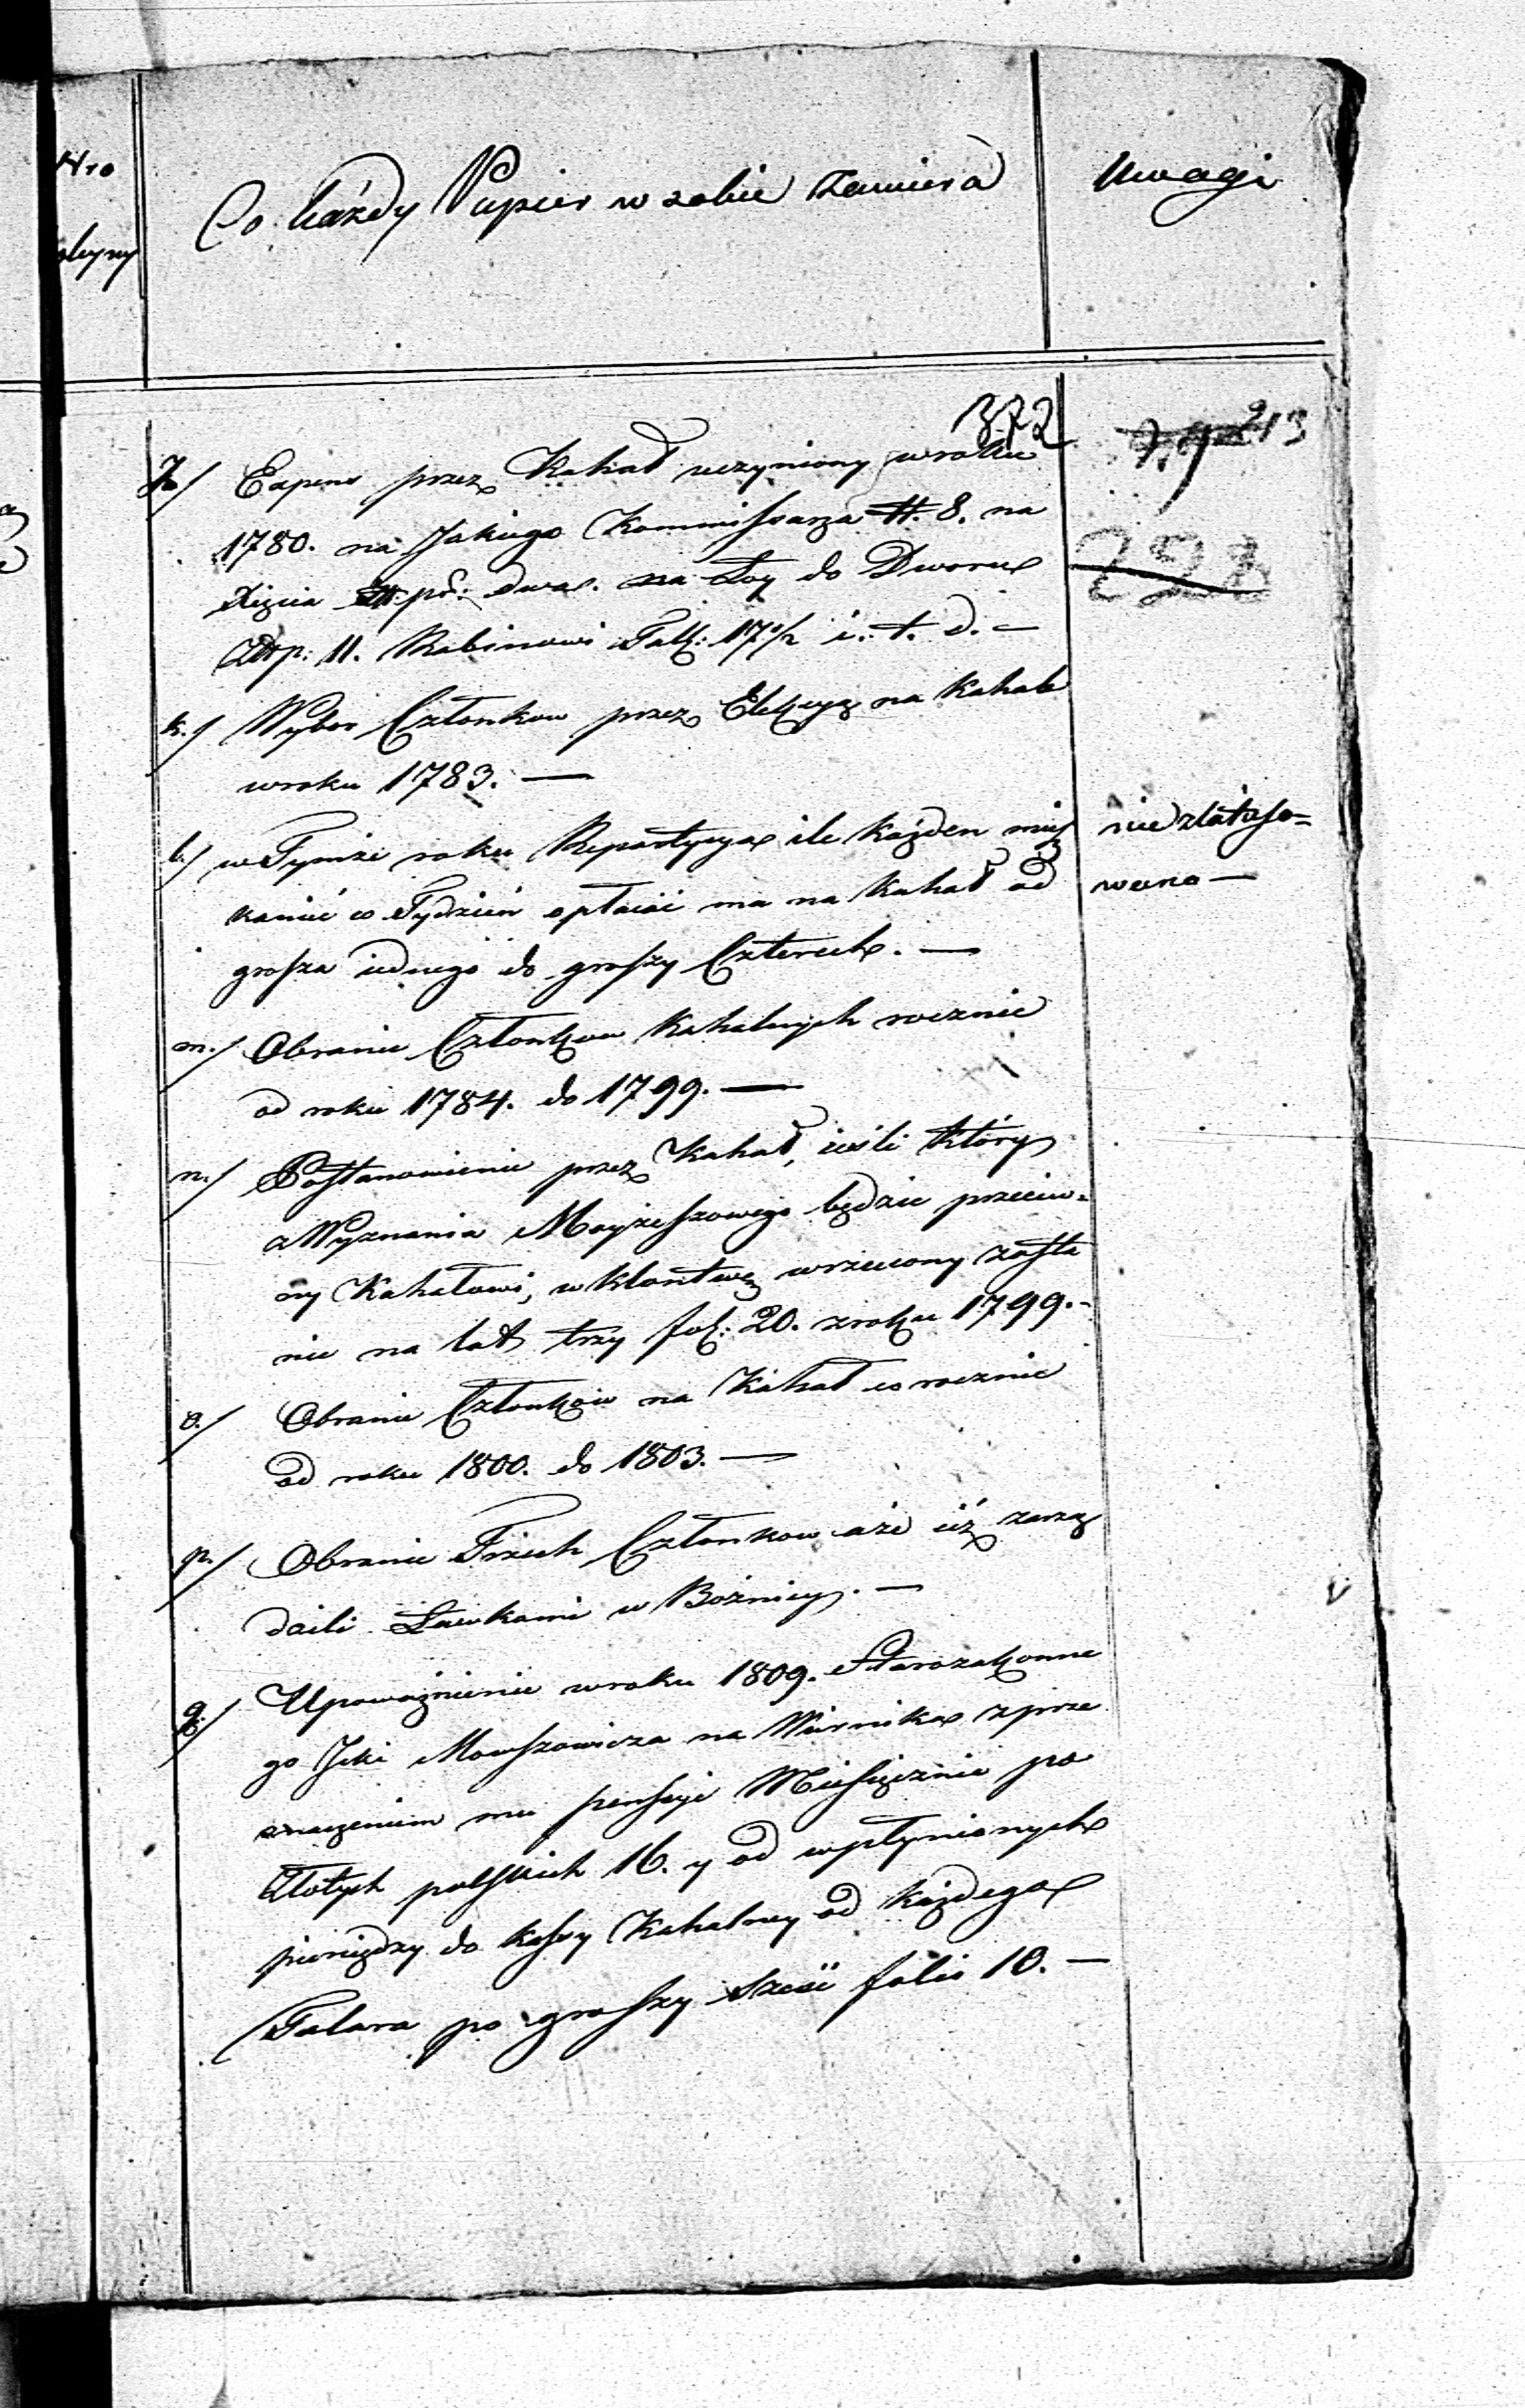 Nro
Co każdy Papier w sobie zawiera
Uwagi
372
213
292
Expens przez Kahał uczyniony w roku
1780. na Jakiego Kommissarza #. 8. na
Xięcia dwa. na Łoy do Dworu
Złtp: 11. Rabinowi Tall: 17 1/2 i. t. d. —
k./ Wybor Członkow przez Elekcyą na Kahał
w roku 1783. —
l./ w Tymże roku Repartycya ile każden mięs
nie statoso=
kanie co Tydzień opłaić ma na Kahał od
wano —
grosza iednego do groszy Czterech. —
m./ Obranie Członkow Kahalnych rocznie
od roku 1784. do 1799. —
n./ Postanowienie przez Kahał, ieśli który
z Wyznania Moyżeszowego będzie przeciw=
ny Kahałowi, w klontwę wrzucony zosta
nie na lat trzy fol: 20. z roku 1799. -
o./ Obranie Członków na Kahał corocznie
od roku 1800. do 1803. —
p./ Obranie Trzech Członkow aże iiż zarzą
dzili Ławkami w Bożnicy. —
q./ Upoważnienie w roku 1809. Starozakonne
go Icki Mowszowicza na Wiernika z prze
znaczeniem mu pensyi Miesięcznie po
Złotych polskich 16. y od wpłynionych
pieniędzy do kassy Kahalney od każdego
Talara po groszy sześć folio 10. —